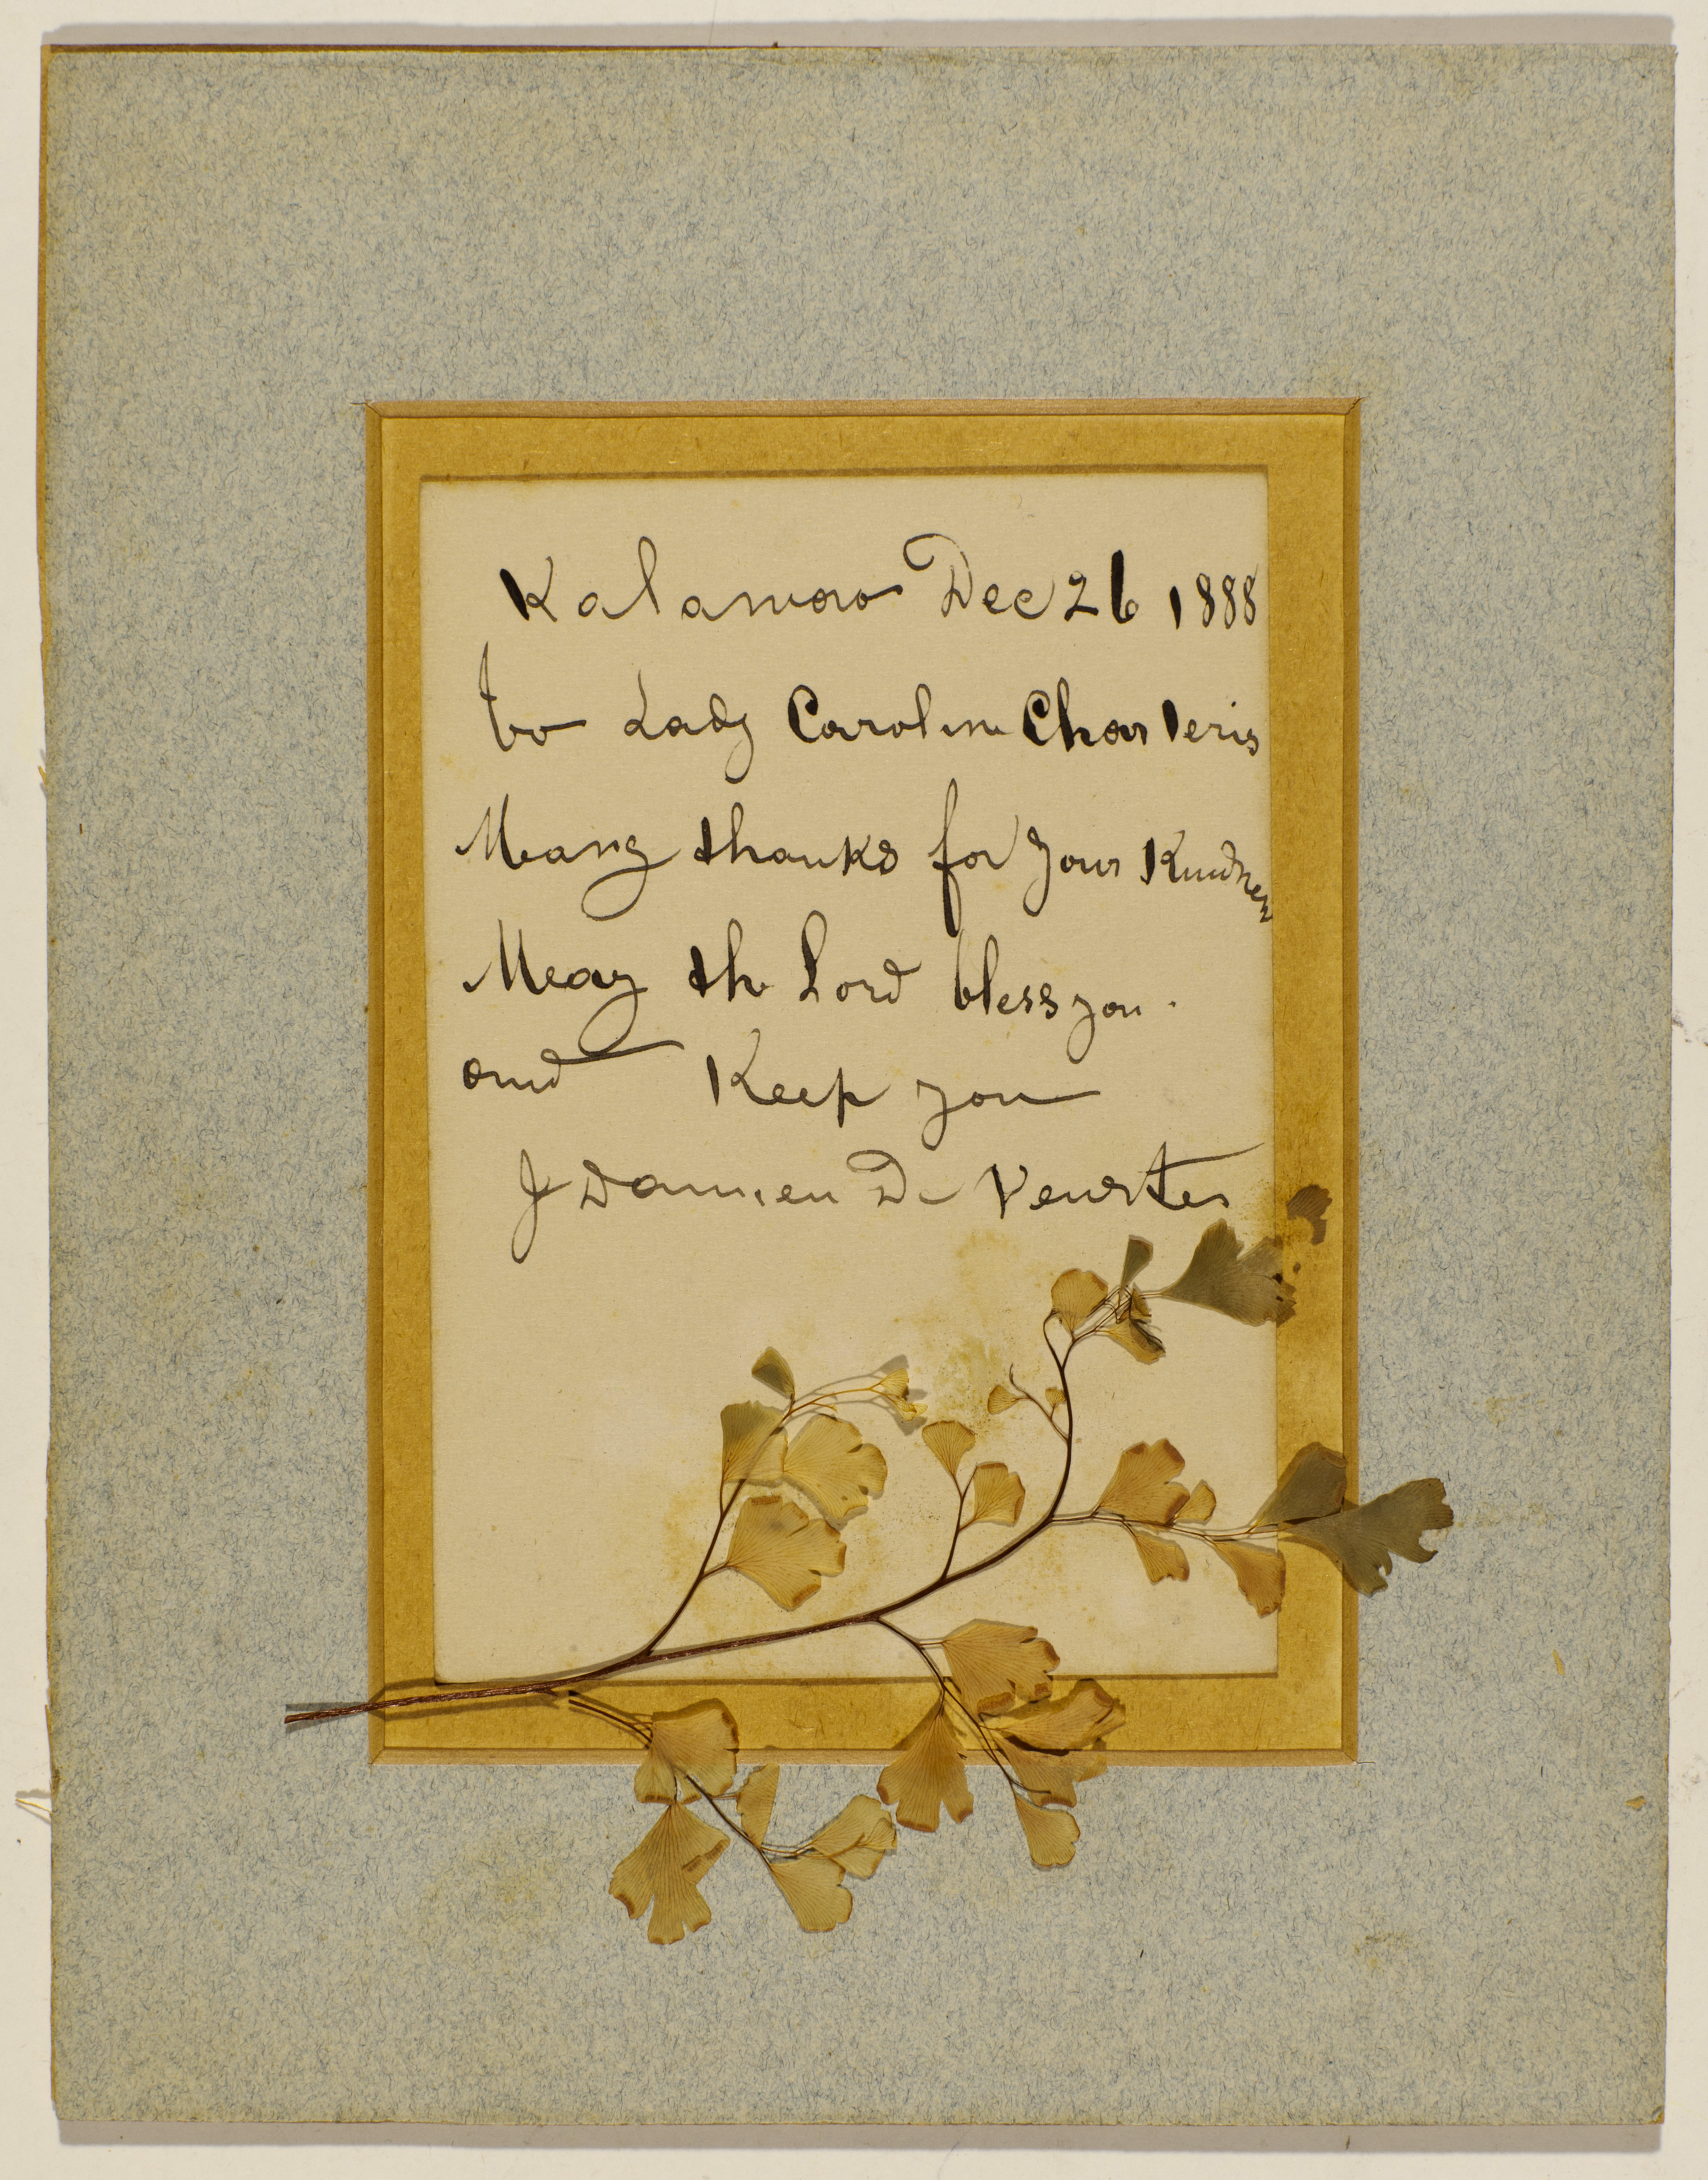 Kalawao Dec 26 1888
to Lady Caroline Charteris
Many thanks for your Kindness
May the Lord bless you.
and Keep you
J Damien De Veuster